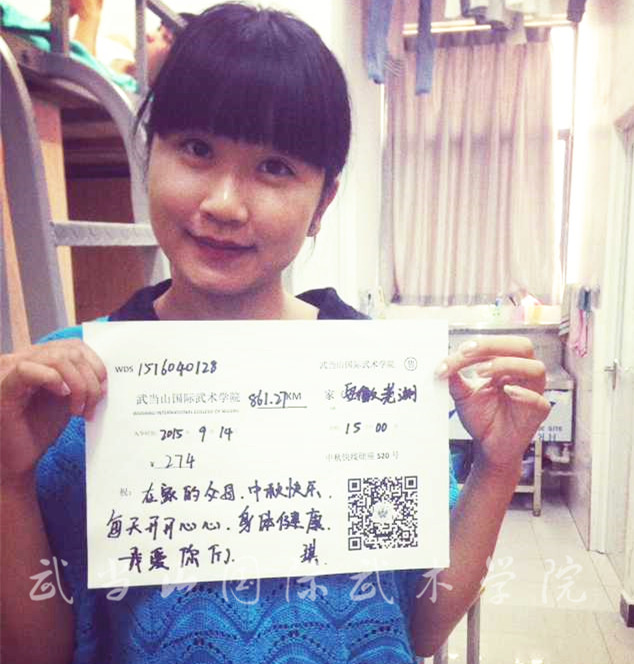 WDS 1516040128 武当山国际武术学院 售
武当山国际武术学院 861.27KM 家 安徽芜湖
WUDANG INTERNATIONAL COLLEGE OF WUSHU
入学时间 2015 · 9 · 14 15 : 00
¥ 274 中秋快线硬座 520 号
祝: 在家的父母, 中秋快乐,
每天开开心心, 身体健康,
我爱你们. 琪.
武当山国际武术学院